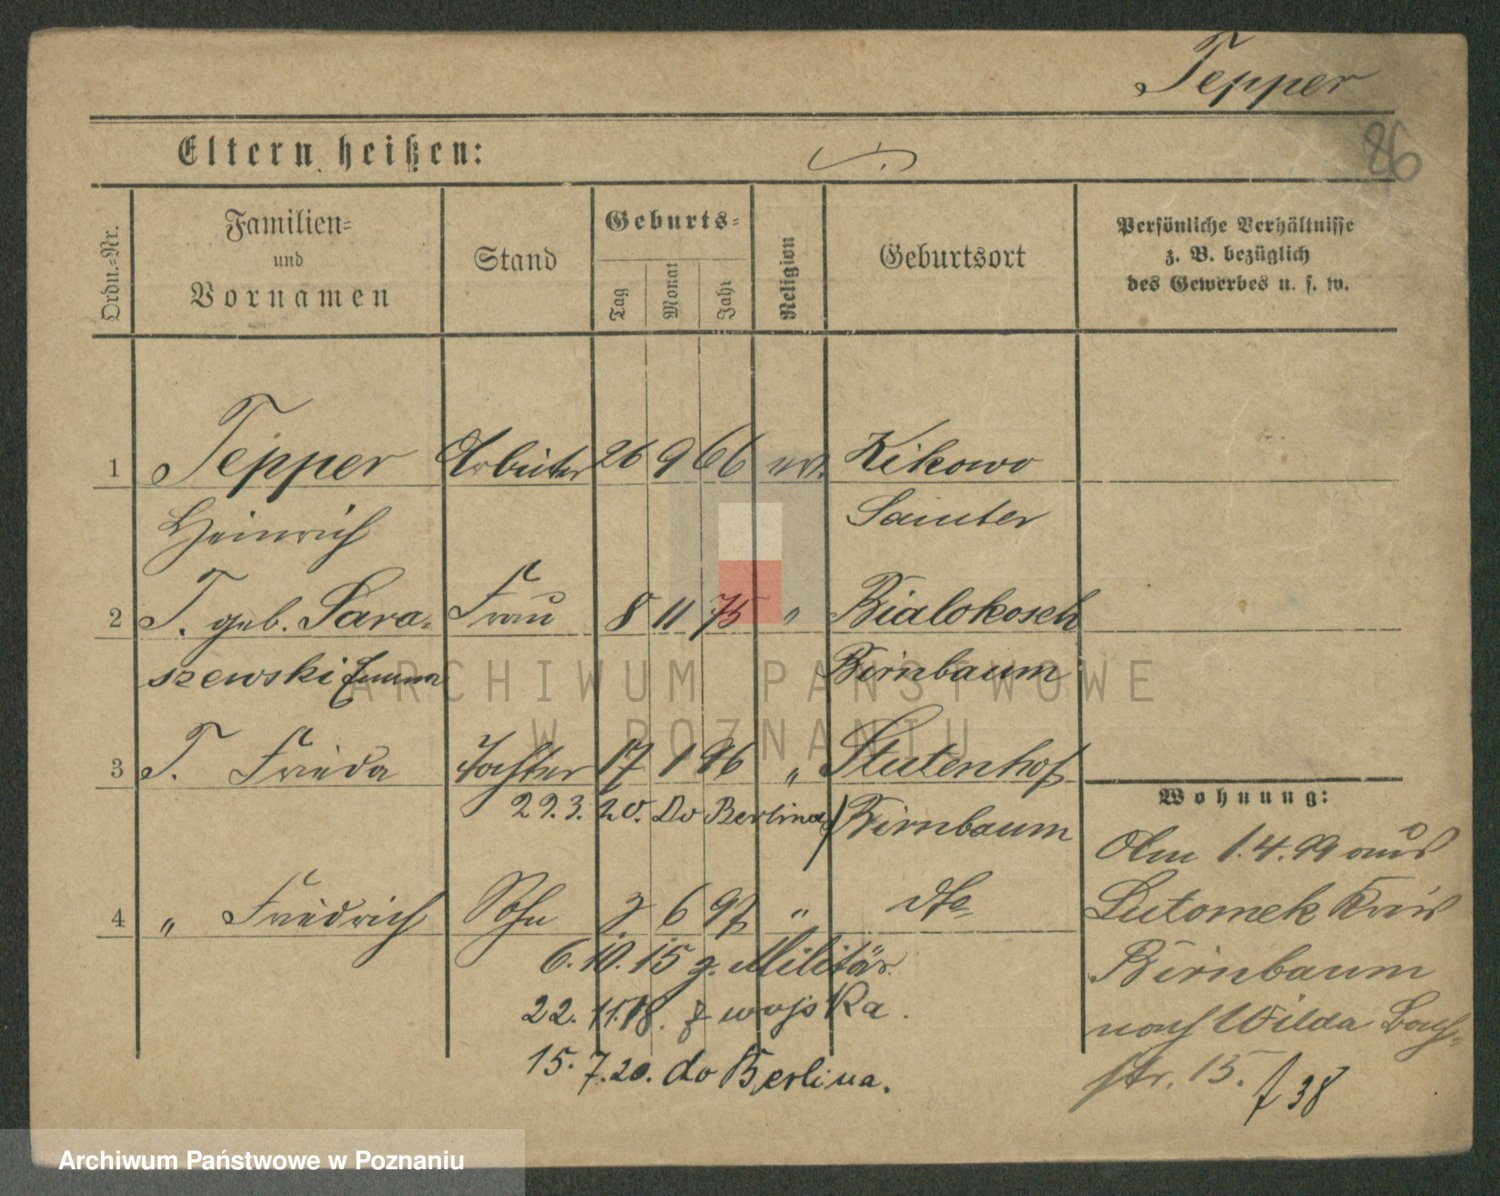 Tepper
86
Eltern heißen:
Ordn.=Nr.
Familien=
und
Vornamen
Stand
Geburts=
Tag
Monat
Jahr
Religion
Geburtsort
Persönliche Verhältnisse
z. B. bezüglich
des Gewerbes u. s. w.
1 Tepper Arbeiter 26 9 66 ev. Kikowo
Heinrich Samter
2 T. geb. Sara- Frau 8 11 75 " Bialokosch
szewski Emma Birnbaum
3 T. Frieda Tochter 17 1 96 " Stutenhof
29.3.20. Do Berlina Birnbaum
4 " Friedrich Sohn 6 97 " dto
6.10.15 z. Militär.
22.11.18. z wojska.
15.7.20. do Berlina.
Wohnung:
Am 1.4.99 aus
Lutomek Kreis
Birnbaum
nach Wilda Bach-
str. 15. 38
ARCHIWUM PAŃSTWOWE
W POZNANIU
Archiwum Państwowe w Poznaniu